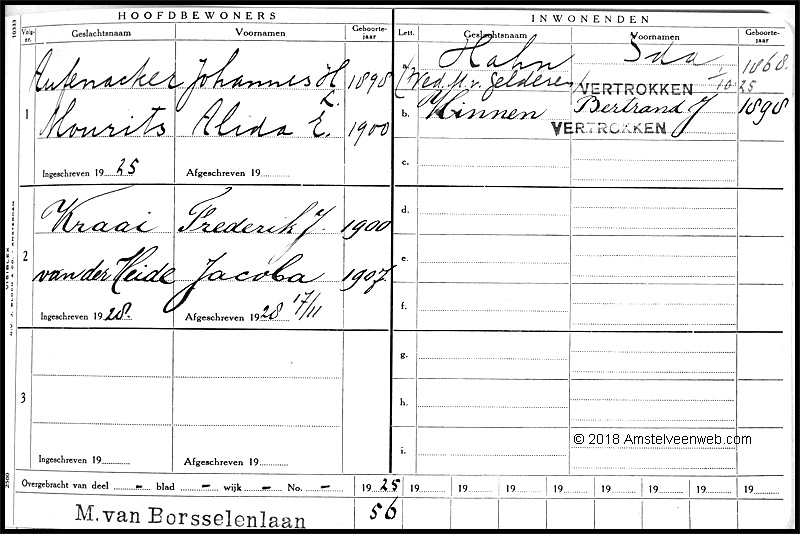 HOOFDBEWONERS
Volg-nr. Geslachtsnaam Voornamen Geboorte-jaar
1 Aufenacker Johannes H L. 1898
Mourits Alida E. 1900
Ingeschreven 19 25 Afgeschreven 19
2 Kraai Frederik J. 1900
van der Heide Jacoba 1907
Ingeschreven 19 28. Afgeschreven 19 28 17/11
3
Ingeschreven 19 Afgeschreven 19
INWONENDEN
Lett. Geslachtsnaam Voornamen Geboorte-jaar
a. Hahn Ida 1868.
(Wed. M. v. Gelderen) VERTROKKEN 1/10 25
b. Kinnen Bertrand J 1898
VERTROKKEN
c.
d.
e.
f.
g.
h.
i.
© 2018 Amstelveenweb.com
Overgebracht van deel - blad - wijk - No. - 19 25 19 19 19 19 19 19 19 19
M. van Borsselenlaan 56
10333
2500